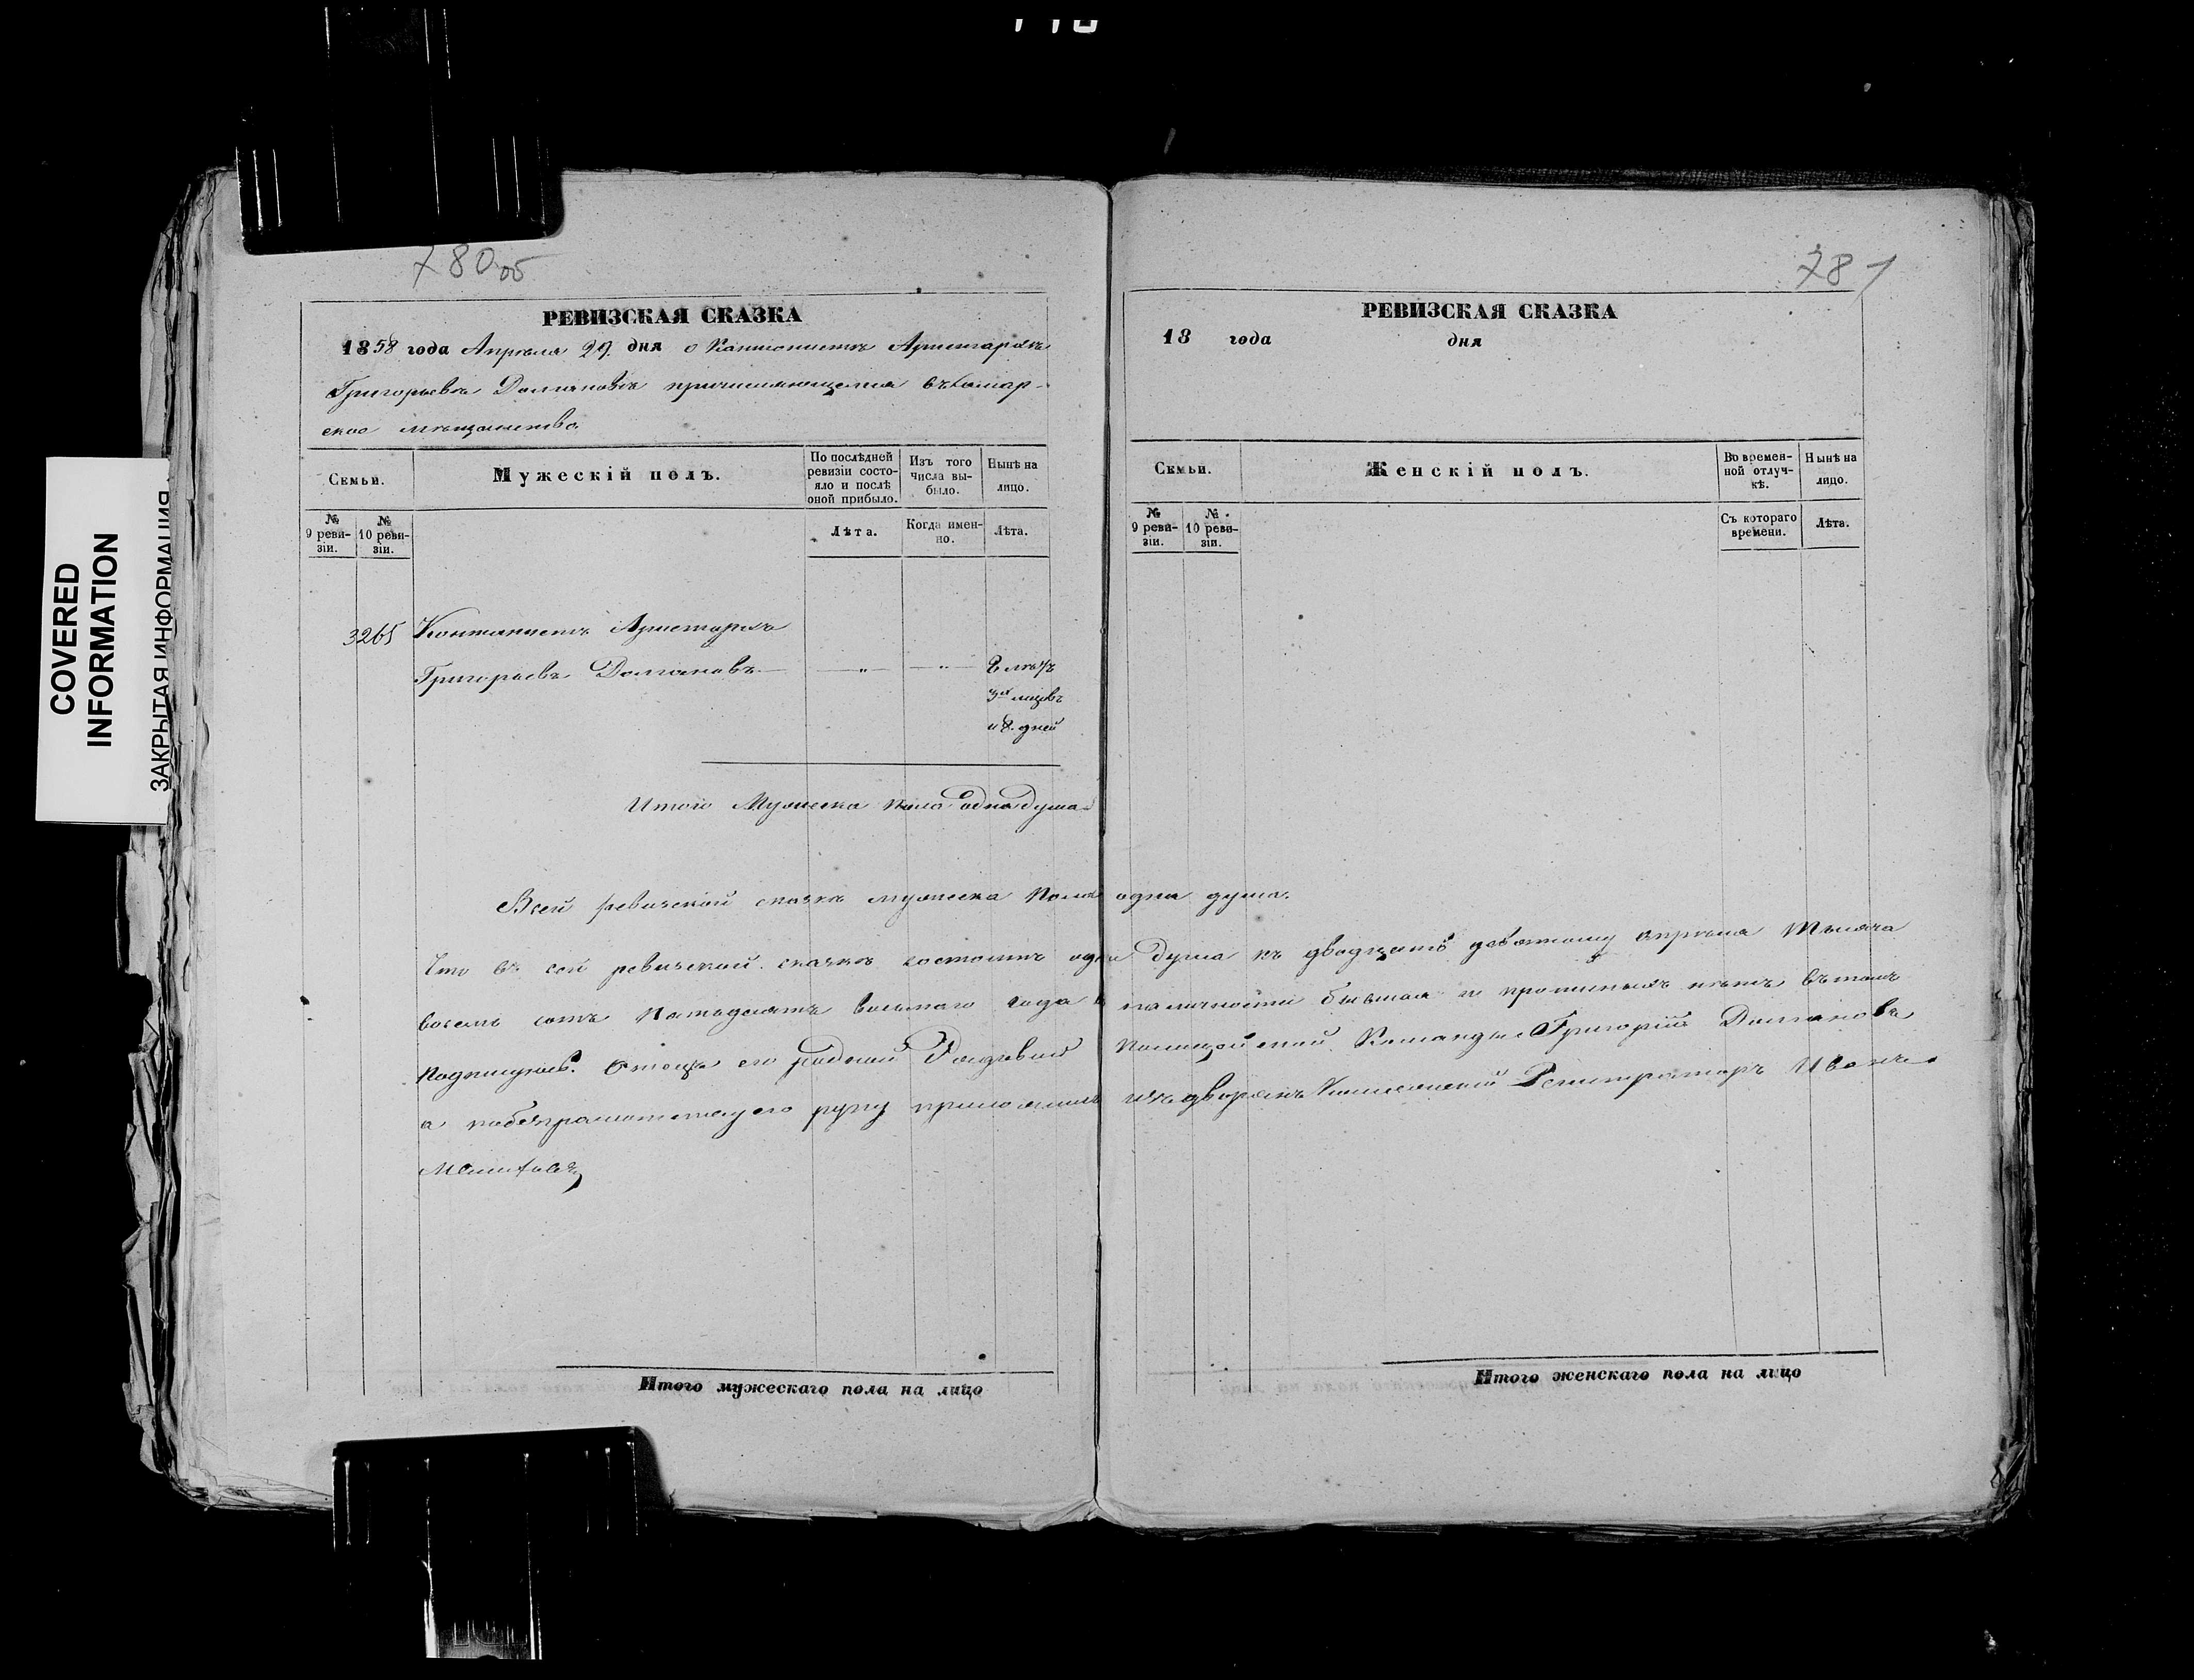 COVERED
INFORMATION
ЗАКРЫТАЯ ИНФОРМАЦИЯ
780об
РЕВИЗСКАЯ СКАЗКА
1858 года Апрѣля 29. дня о Кантонистѣ Аристархѣ
Григорьевѣ Долгановѣ причисляющемся въ Самар-
ское мѣщанство.
Семьи.
Мужескій полъ.
По послѣдней ревизіи состо-яло и послѣ оной прибыло.
Изъ того числа вы-было.
Нынѣ на лицо.
№ 9 реви-зіи.
№ 10 реви-зіи.
Лѣта.
Когда имен-но.
Лѣта.
3265 Кантонистъ Аристархъ
Григорьевъ Долгановъ — „ — — „ — 8 лѣтъ
3хъ мцовъ
и 8. дней
Итого Мужеска пола одна душа
Всей ревизской сказкѣ мужеска пола одна душа.
Что въ сей ревизской сказкѣ состоитъ одна душа къ двадцать девятому апрѣля тысяча
восемь сотъ пятьдесятъ восьмаго года въ наличности бывшая и прописныхъ нѣтъ въ томъ
подпишуюсь. Отецъ его родной Рядовой Полицейской Команды Григорій Долгановъ
а по безграмотству его руку приложилъ изъ дворянъ Коллежскій Регистраторъ Иванъ
Итого мужескаго пола на лицо
781
РЕВИЗСКАЯ СКАЗКА
18 года дня
Семьи.
Женскій полъ.
Во времен-ной отлуч-кѣ.
Нынѣ на лицо.
№ 9 реви-зіи.
№ 10 реви-зіи.
Съ котораго времени.
Лѣта.
Итого женскаго пола на лицо